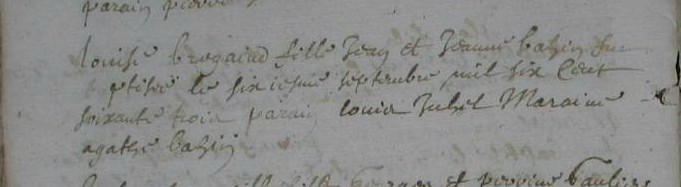 parain pierre
Louise bregaind fille Jean et Jeanne bazin fut
ptisée le sixiesme septembre mil six Cent
soixante trois parain Louis Juhel Maraine
agathe bazin
fille et perrine Gaultier